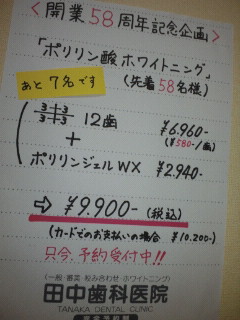 〈開業58周年記念企画〉
「ポリリン酸ホワイトニング」
(先着58名様)
あと7名です
3+3 12歯 ¥6,960-
3+3
(¥580-/歯)
+
ポリリンジェルWX ¥2,940-
⇨ ¥9,900- (税込)
(カードでのお支払いの場合 ¥10,200-)
只今、予約受付中!!
〈一般・審美・咬み合わせ・ホワイトニング〉
田中歯科医院
TANAKA DENTAL CLINIC